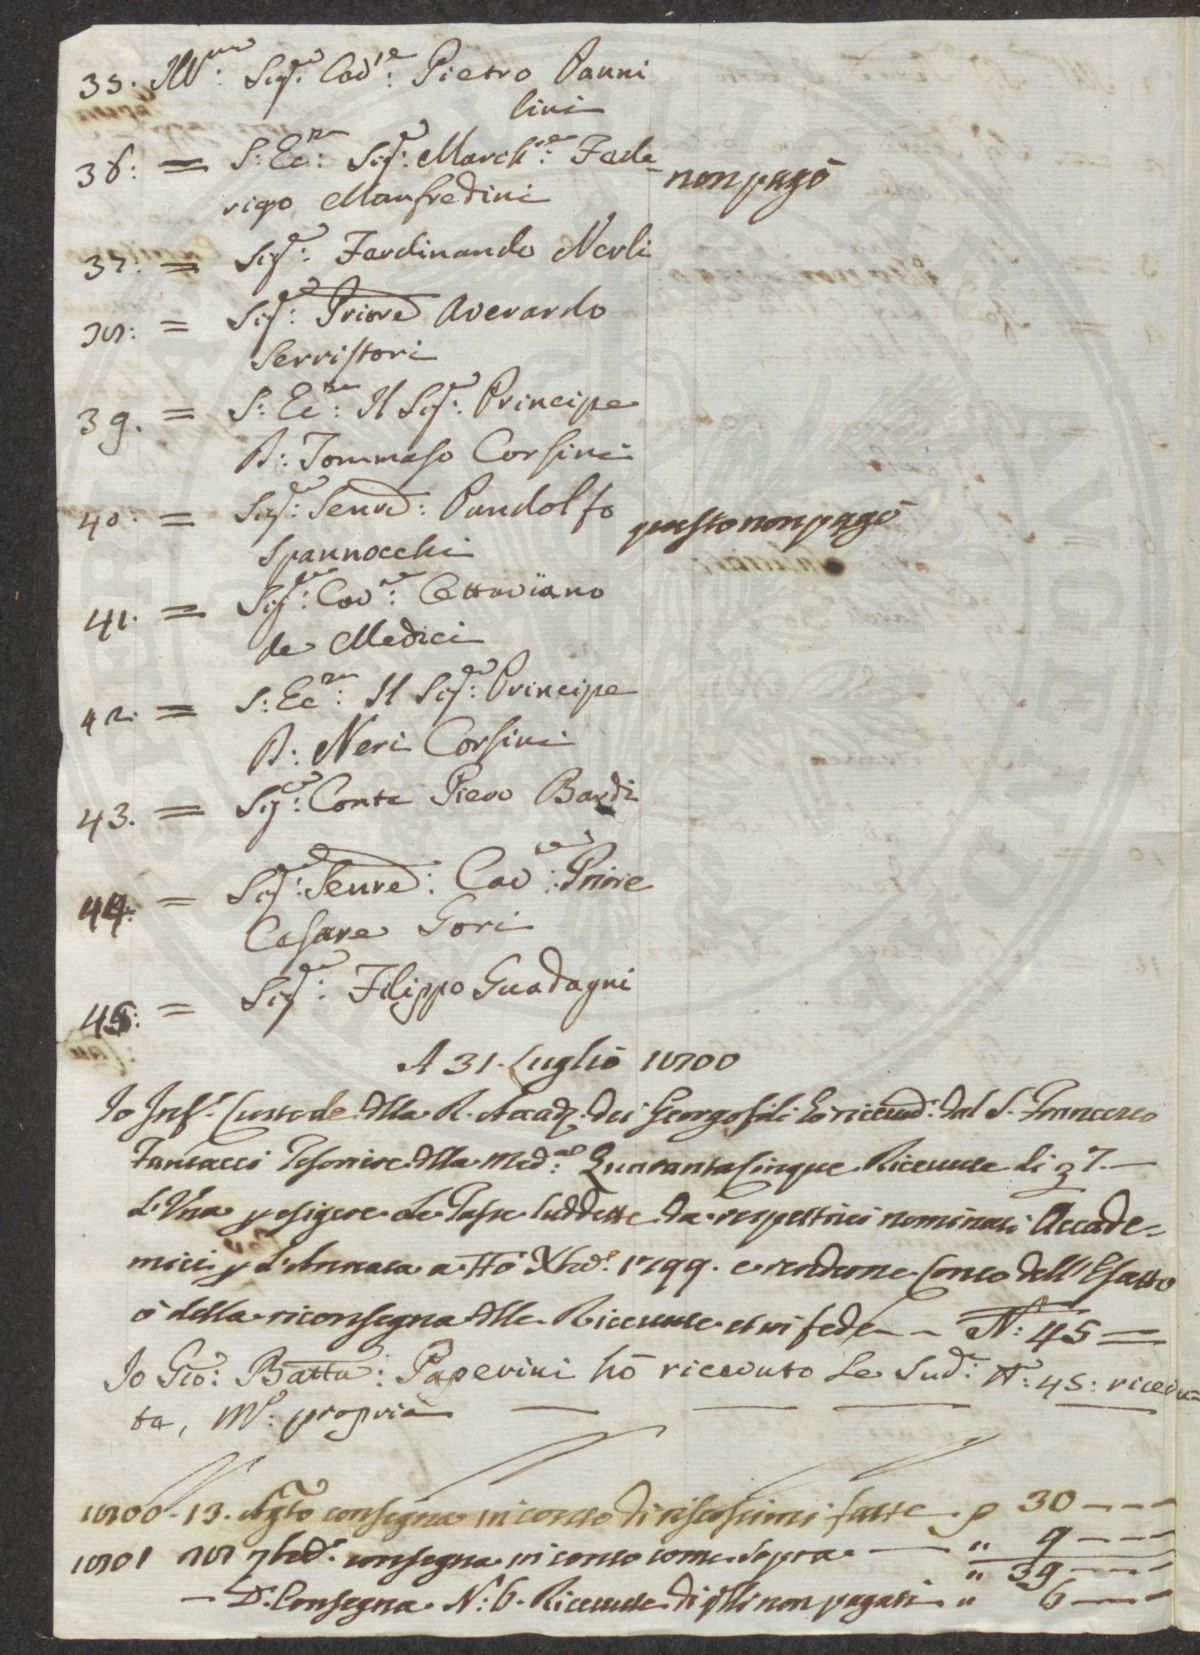 35. Ill:mo Sig:r Cav:re Pietro Panni
lini
36: = S: Ec:za Sig:r March:se Fede-
rigo Manfredini non pagò
37: = Sig:r Ferdinando Nerli
38: = Sig:r Priore Averardo
Serristori
39. = S: Ec:za Il Sig:r Principe
D: Tommaso Corsini
40: = Sig:r Senre: Pandolfo questo non pagò
Spannocchi
41. = Sig:r Cav:re Ottaviano
de Medici
42: = S: Ec:za Il Sig:r Principe
D: Neri Corsini
43. = Sig:r Conte Piero Bardi
44: = Sig:r Senre: Cav:re Priore
Cesare Gori
45: = Sig:r Filippo Guadagni
A 31. Luglio 1800
Io Inf:o Custode della R. Accad:a dei Georgofili hò ricevuto dal S. Francesco
Tesoriere della Med:ma Quaranta Cinque Ricevute di 7.—
L'Una p esigere Le Tasse suddette da respettivi nominati Accade-
mici p L'Annata a tto 1799. e renderne Conto dell'Esatto
ò della riconsegna delle Ricevute et in fede — N: 45 =
Io Gio: Batta: Paperini hò ricevuto Le Sud:e N: 45: ricevu
te, M:o propria
1800. 13. Agto consegna in conto di riscossioni fatte p 30 — — —
1801 28 consegna in conto come sopra — " 9 — — —
" 39 — — —
— D:o Consegna N: 6. Ricevute di non pagati " 6 — — —